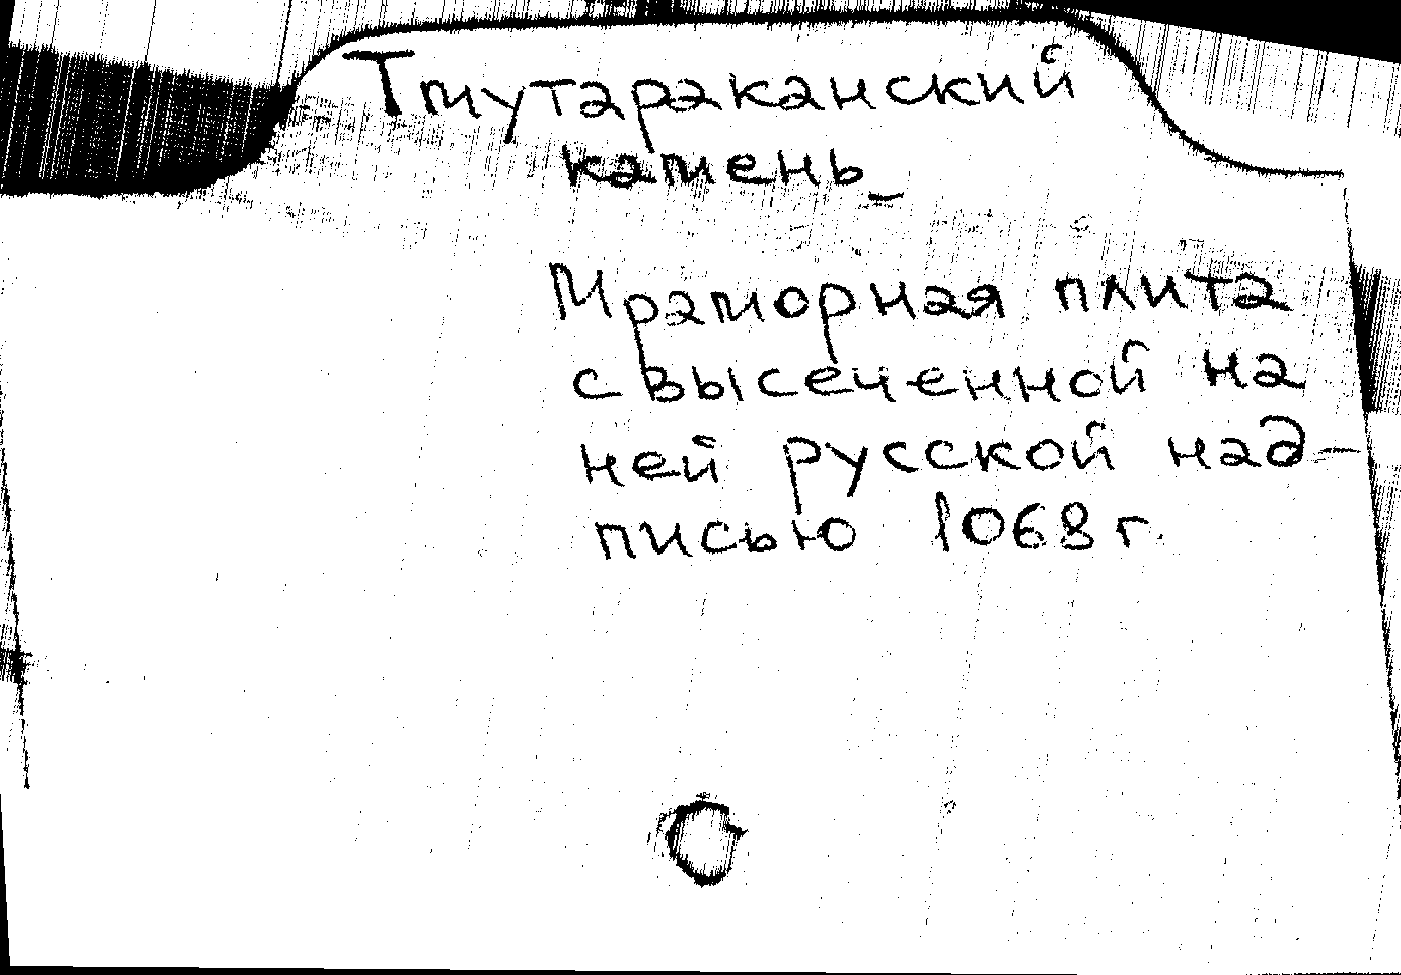 Тмутараканский
камень_
Мраморная плита
с высеченной на
ней русской над-
писью 1068 г.